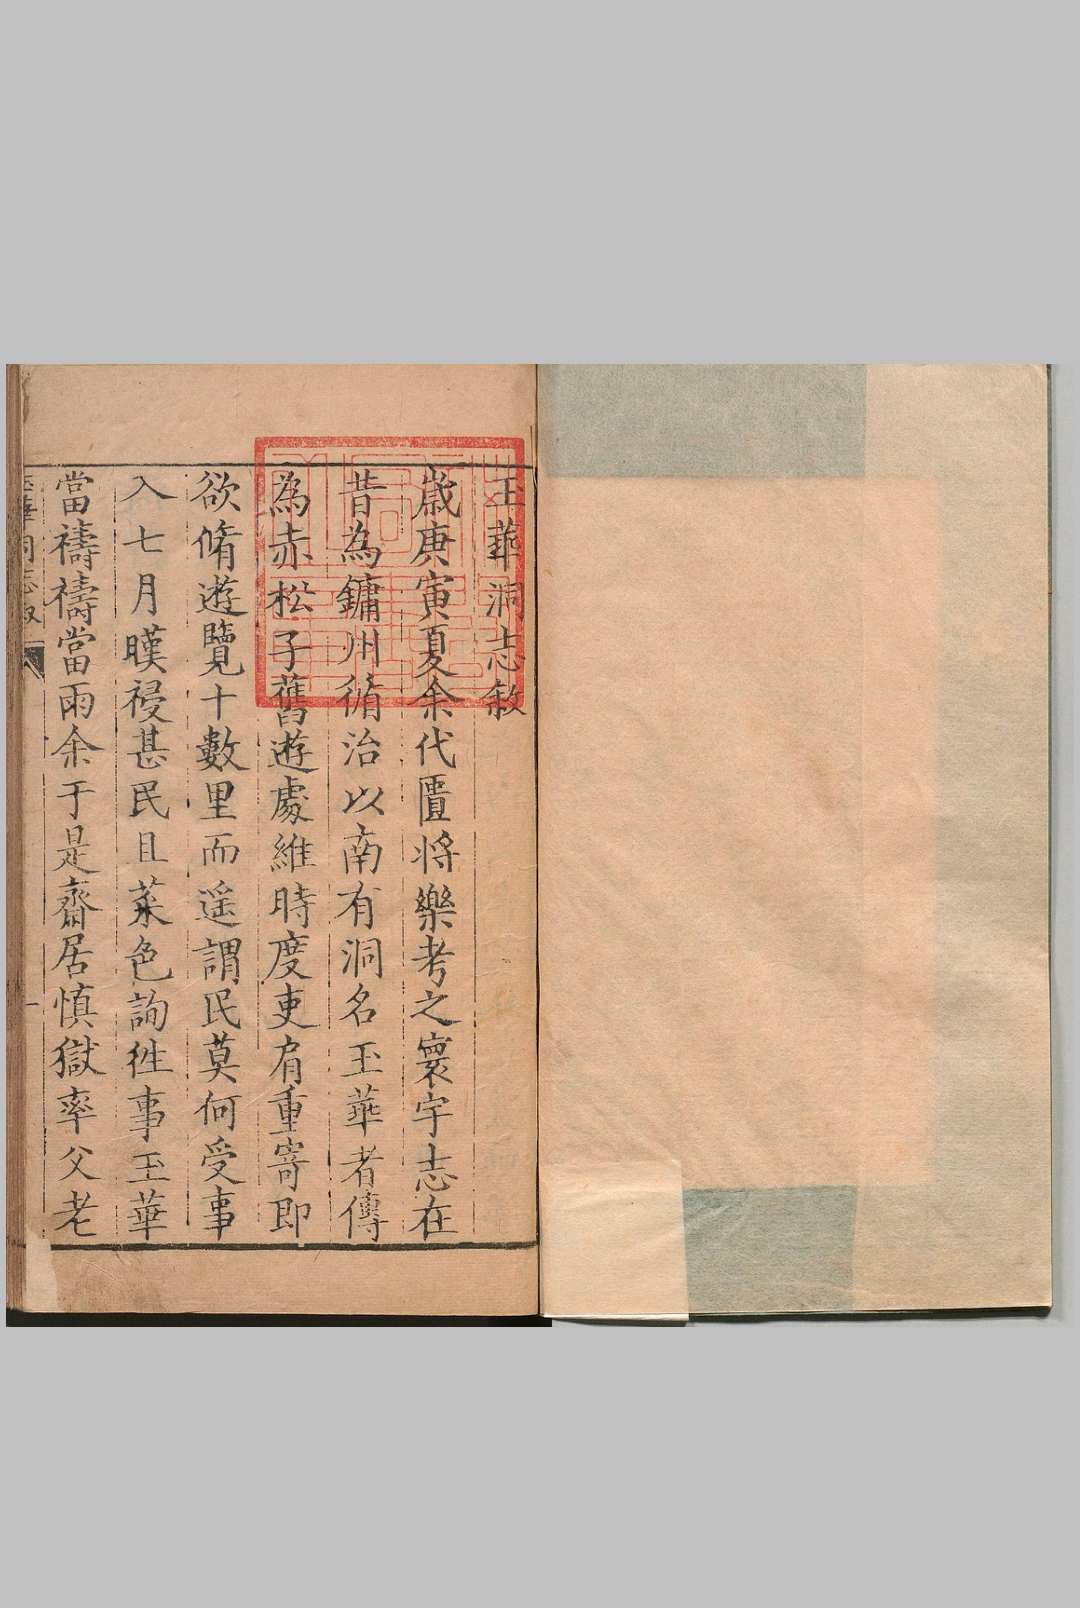 玉華洞志敘
歲庚寅夏余代匱將樂考之寰宇志在
昔為鏞州脩治以南有洞名玉華者傳
為赤松子舊遊處維時度吏肩重寄即
欲脩遊覽十數里而遥謂民莫何受事
入七月暵祲甚民且菜色詢徃事玉華
當禱禱當雨余于是齋居慎獄率父老
玉華洞志敘
一